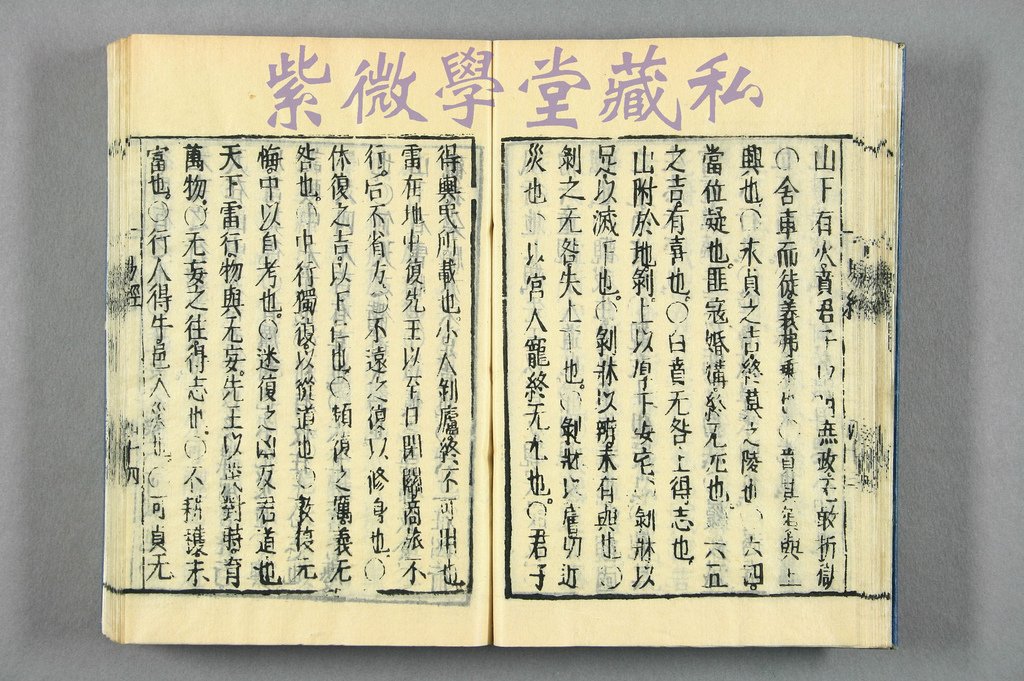 紫微學堂藏私
山下有火賁君子以明庶政无敢折獄
〇舍車而徒義弗乘也〇賁其與上
興也。〇永貞之吉終莫之陵也〇六四。
當位疑也。匪寇婚媾終无尤也 六五
之吉有喜也。〇白賁无咎上得志也
山附於地剝。上以厚下安宅 剝牀以
足以滅下也。〇剝牀以辨未有與也〇
剝之无咎失上下也。〇剝牀以膚切近
災也〇以宮人寵終无尤也。〇君子
得輿民所載也小人剝廬終不可用也
雷在地中復先王以至日閉關商旅不
行后不省方〇不遠之復以修身也〇
休復之吉以下仁也〇頻復之厲義无
咎也。中行獨復以從道也〇敦復无
悔中以自考也。〇迷復之凶反君道也
天下雷行物與无妄。先王以茂對時育
萬物。〇无妄之往得志也。〇不耕穫未
富也。〇行人得牛邑人災也〇可貞无
易經
十四